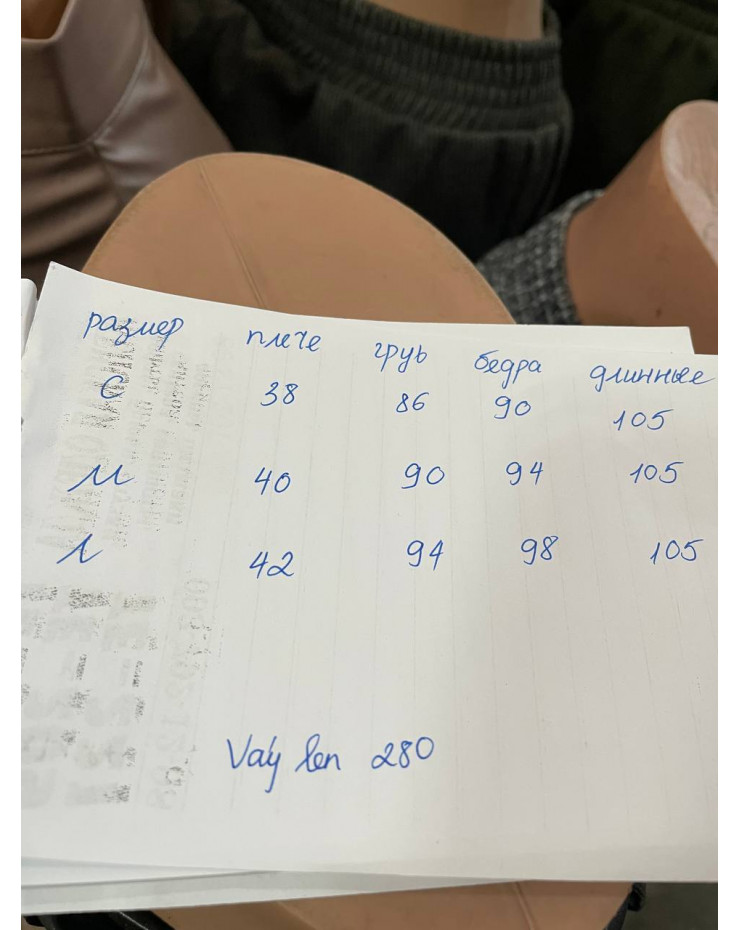 размер плече груь бедра длинные
С 38 86 90 105
М 40 90 94 105
Л 42 94 98 105
Váy len 280